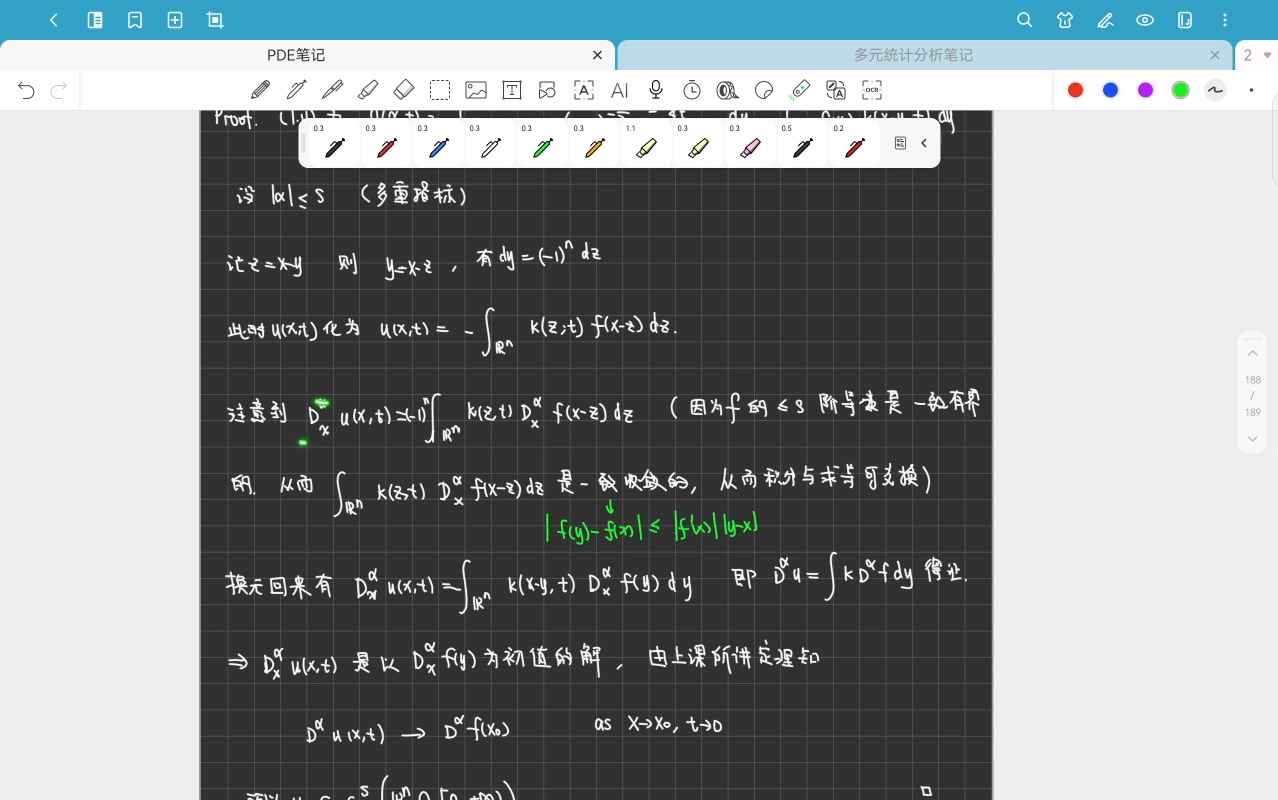 PDE笔记
多元统计分析笔记
2
AI
OCR
Proof.
0.3 0.3 0.3 0.3 0.3 0.3 1.1 0.3 0.3 0.5 0.2
设 |α| ≤ s （多重指标）
记 z = x-y 则 y = x-z , 有 dy = (-1)^n dz
此时 u(x,t) 化为 u(x,t) = - ∫_{ℝ^n} k(z,t) f(x-z) dz.
注意到 D_x^α u(x,t) = (-1)^n ∫_{ℝ^n} k(z,t) D_x^α f(x-z) dz （因为 f 的 ≤ s 阶导数是一致有界
的. 从而 ∫_{ℝ^n} k(z,t) D_x^α f(x-z) dz 是一致收敛的, 从而积分与求导可交换）
↓
|f(y) - f(x)| ≤ |f'(x)| |y-x|
换元回来有 D_x^α u(x,t) = ∫_{ℝ^n} k(x-y,t) D_x^α f(y) dy 即 D^α u = ∫ k D^α f dy 得证.
⇒ D_x^α u(x,t) 是以 D_x^α f(y) 为初值的解 , 由上课所讲定理知
D^α u(x,t) → D^α f(x₀) as x→x₀, t→0
188
/
189